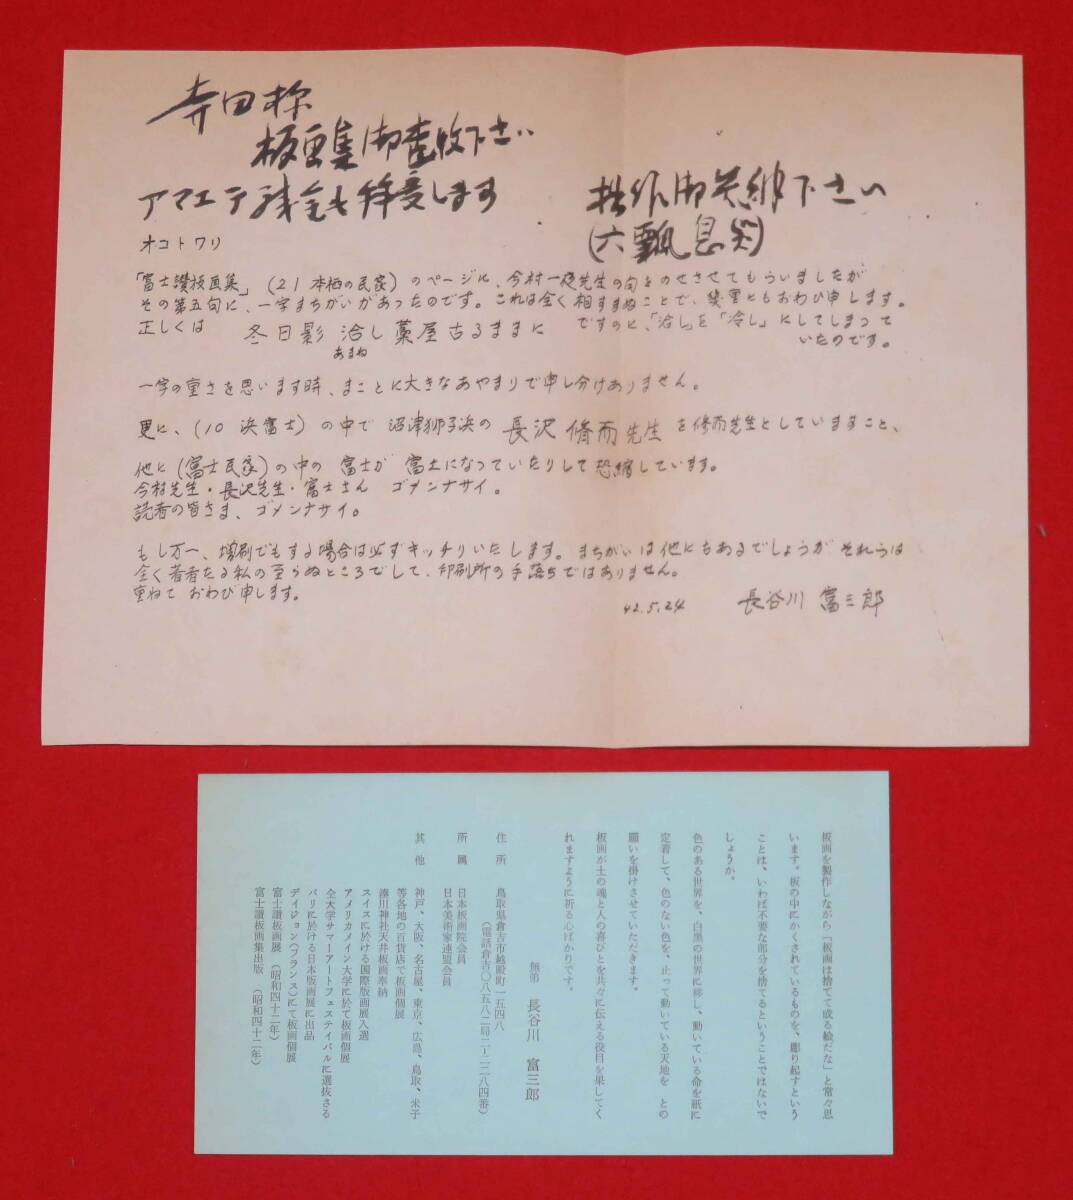 寺田様
板画集御査収下さい
アマエテ残金も拝受します
拙作御笑納下さい
オコトワリ
「富士讃板画集」(21 本栖の民家)のページに、今村一夜先生の句をのせさせてもらいましたが
その第五句に、一字まちがいがあったのです。これは全く相すまぬことで、幾重にもおわび申します。
正しくは 冬日影 洽し藁屋古るままに ですのに、「洽し」を「冷し」にしてしまって
あまね
いたのです。
一字の重さを思います時、まことに大きなあやまりで申し分けありません。
更に、(10 浜富士)の中で 沼津獅子浜の 長沢 脩而先生 を修而先生としていますこと、
他に(富士民家)の中の 富士が 富土になっていたりして恐縮しています。
今村先生・長沢先生・富士さん ゴメンナサイ。
読者の皆さま、ゴメンナサイ。
もし万一、増刷でもする場合は必ずキッチリいたします。まちがいは他にもあるでしょうが それらは
全く著者たる私の至らぬところでして、印刷所の手落ちではありません。
重ねて おわび申します。
42.5.24 長谷川 富三郎
板画を製作しながら「板画は捨てて成る絵だな」と常々思
います。板の中にかくされているものを、彫り起すという
ことは、いわば不要な部分を捨てるということではないで
しょうか。
色のある世界を、白黒の世界に移し、動いている命を紙に
定着して、色のない色を、止って動いている天地を との
願いを掛けさせていただきます。
板画が土の魂と人の喜びとを共々に伝える役目を果してく
れますように祈る心ばかりです。
無弟 長谷川 富三郎
住所 鳥取県倉吉市越殿町一五四八
(電話倉吉〇八五八二局二—二三八四番)
所属 日本板画院会員
日本美術家連盟会員
其他 神戸、大阪、名古屋、東京、広島、鳥取、米子
等各地の百貨店で板画個展
湊川神社天井板画奉納
スイスに於ける国際版画展入選
アメリカメイン大学に於て板画個展
仝大学サマーアートフェスティバルに選抜さる
パリに於ける日本版画展に出品
ディジョン(フランス)にて板画個展
富士讃板画展 (昭和四十二年)
富士讃板画集出版 (昭和四十二年)